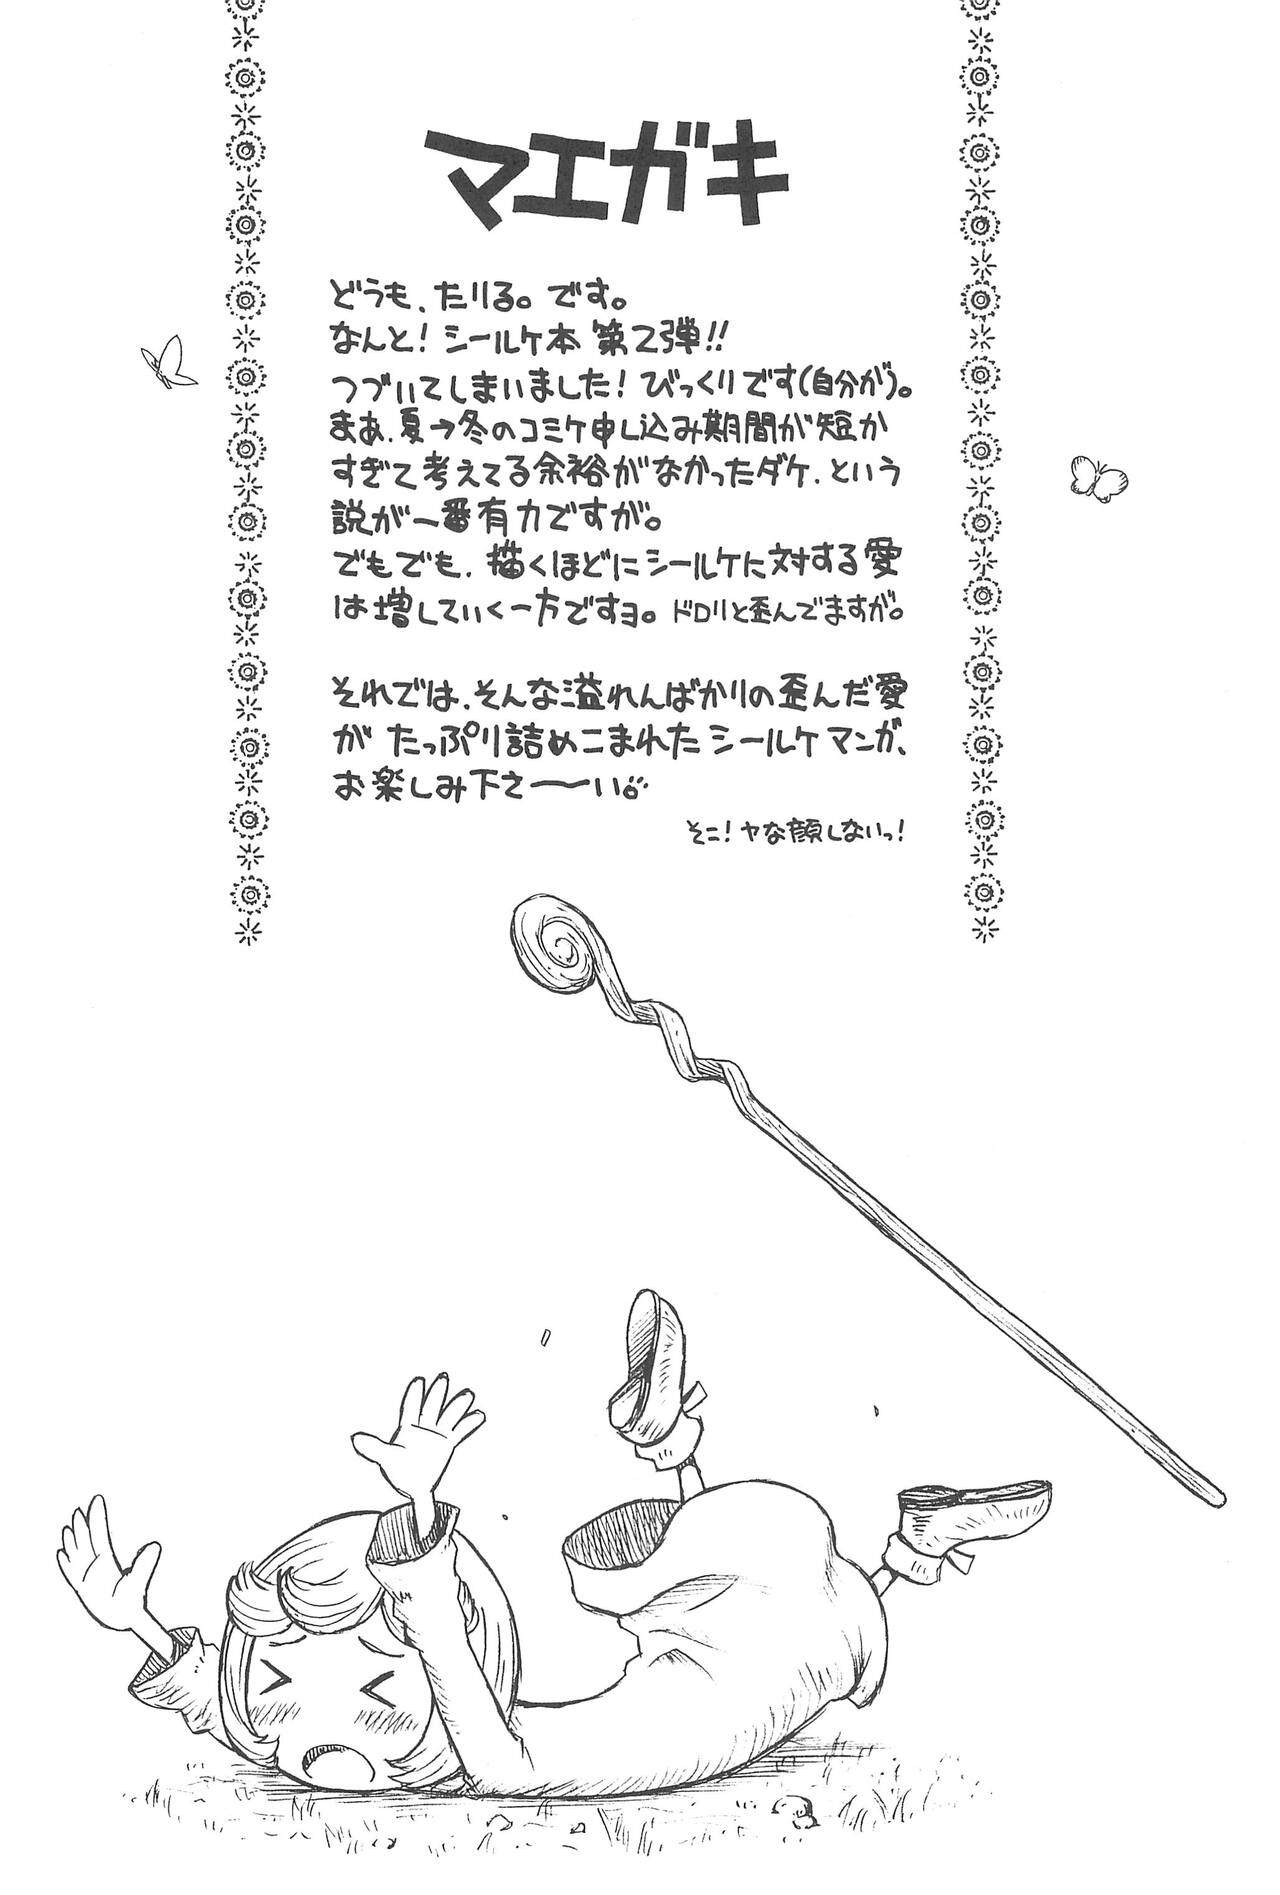 マエガキ
どうも、たりる。です。
なんと！シールケ本 第2弾!!
つづいてしまいました！びっくりです(自分が)。
まあ、夏→冬のコミケ申し込み期間が短か
すぎて考えてる余裕がなかったダケ、という
説が一番有力ですが。
でもでも、描くほどにシールケに対する愛
は増していく一方ですヨ。ドロリと歪んでますが。
それでは、そんな溢れんばかりの歪んだ愛
が たっぷり詰めこまれたシールケマンガ、
お楽しみ下さ〜〜い。
そこ！ヤな顔しないっ！